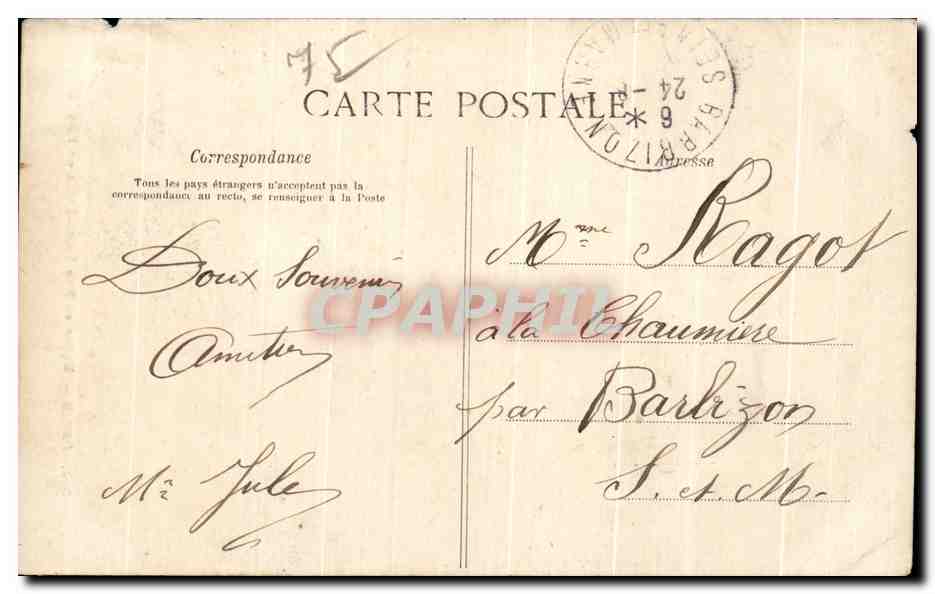 75
CARTE POSTALE
BARBIZON
6 *
24 -
Correspondance
Adresse
Tous les pays étrangers n'acceptent pas la
correspondance au recto, se renseigner à la Poste
Doux Souvenir
Amitiés
Mme Ragot
à la Chaumiere
par Barbizon
S. et M.
CPAPHIL
Jule